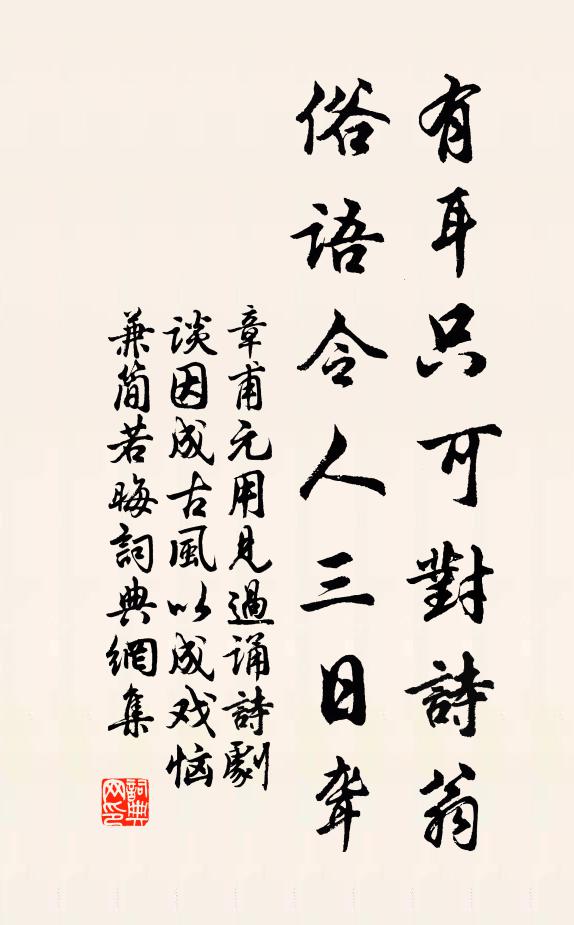 有耳只可對詩翁
俗語令人三日聾
章甫元用見過誦詩劇
談因成古風以成戏惱
兼简若晦詞典網集
詞典网印